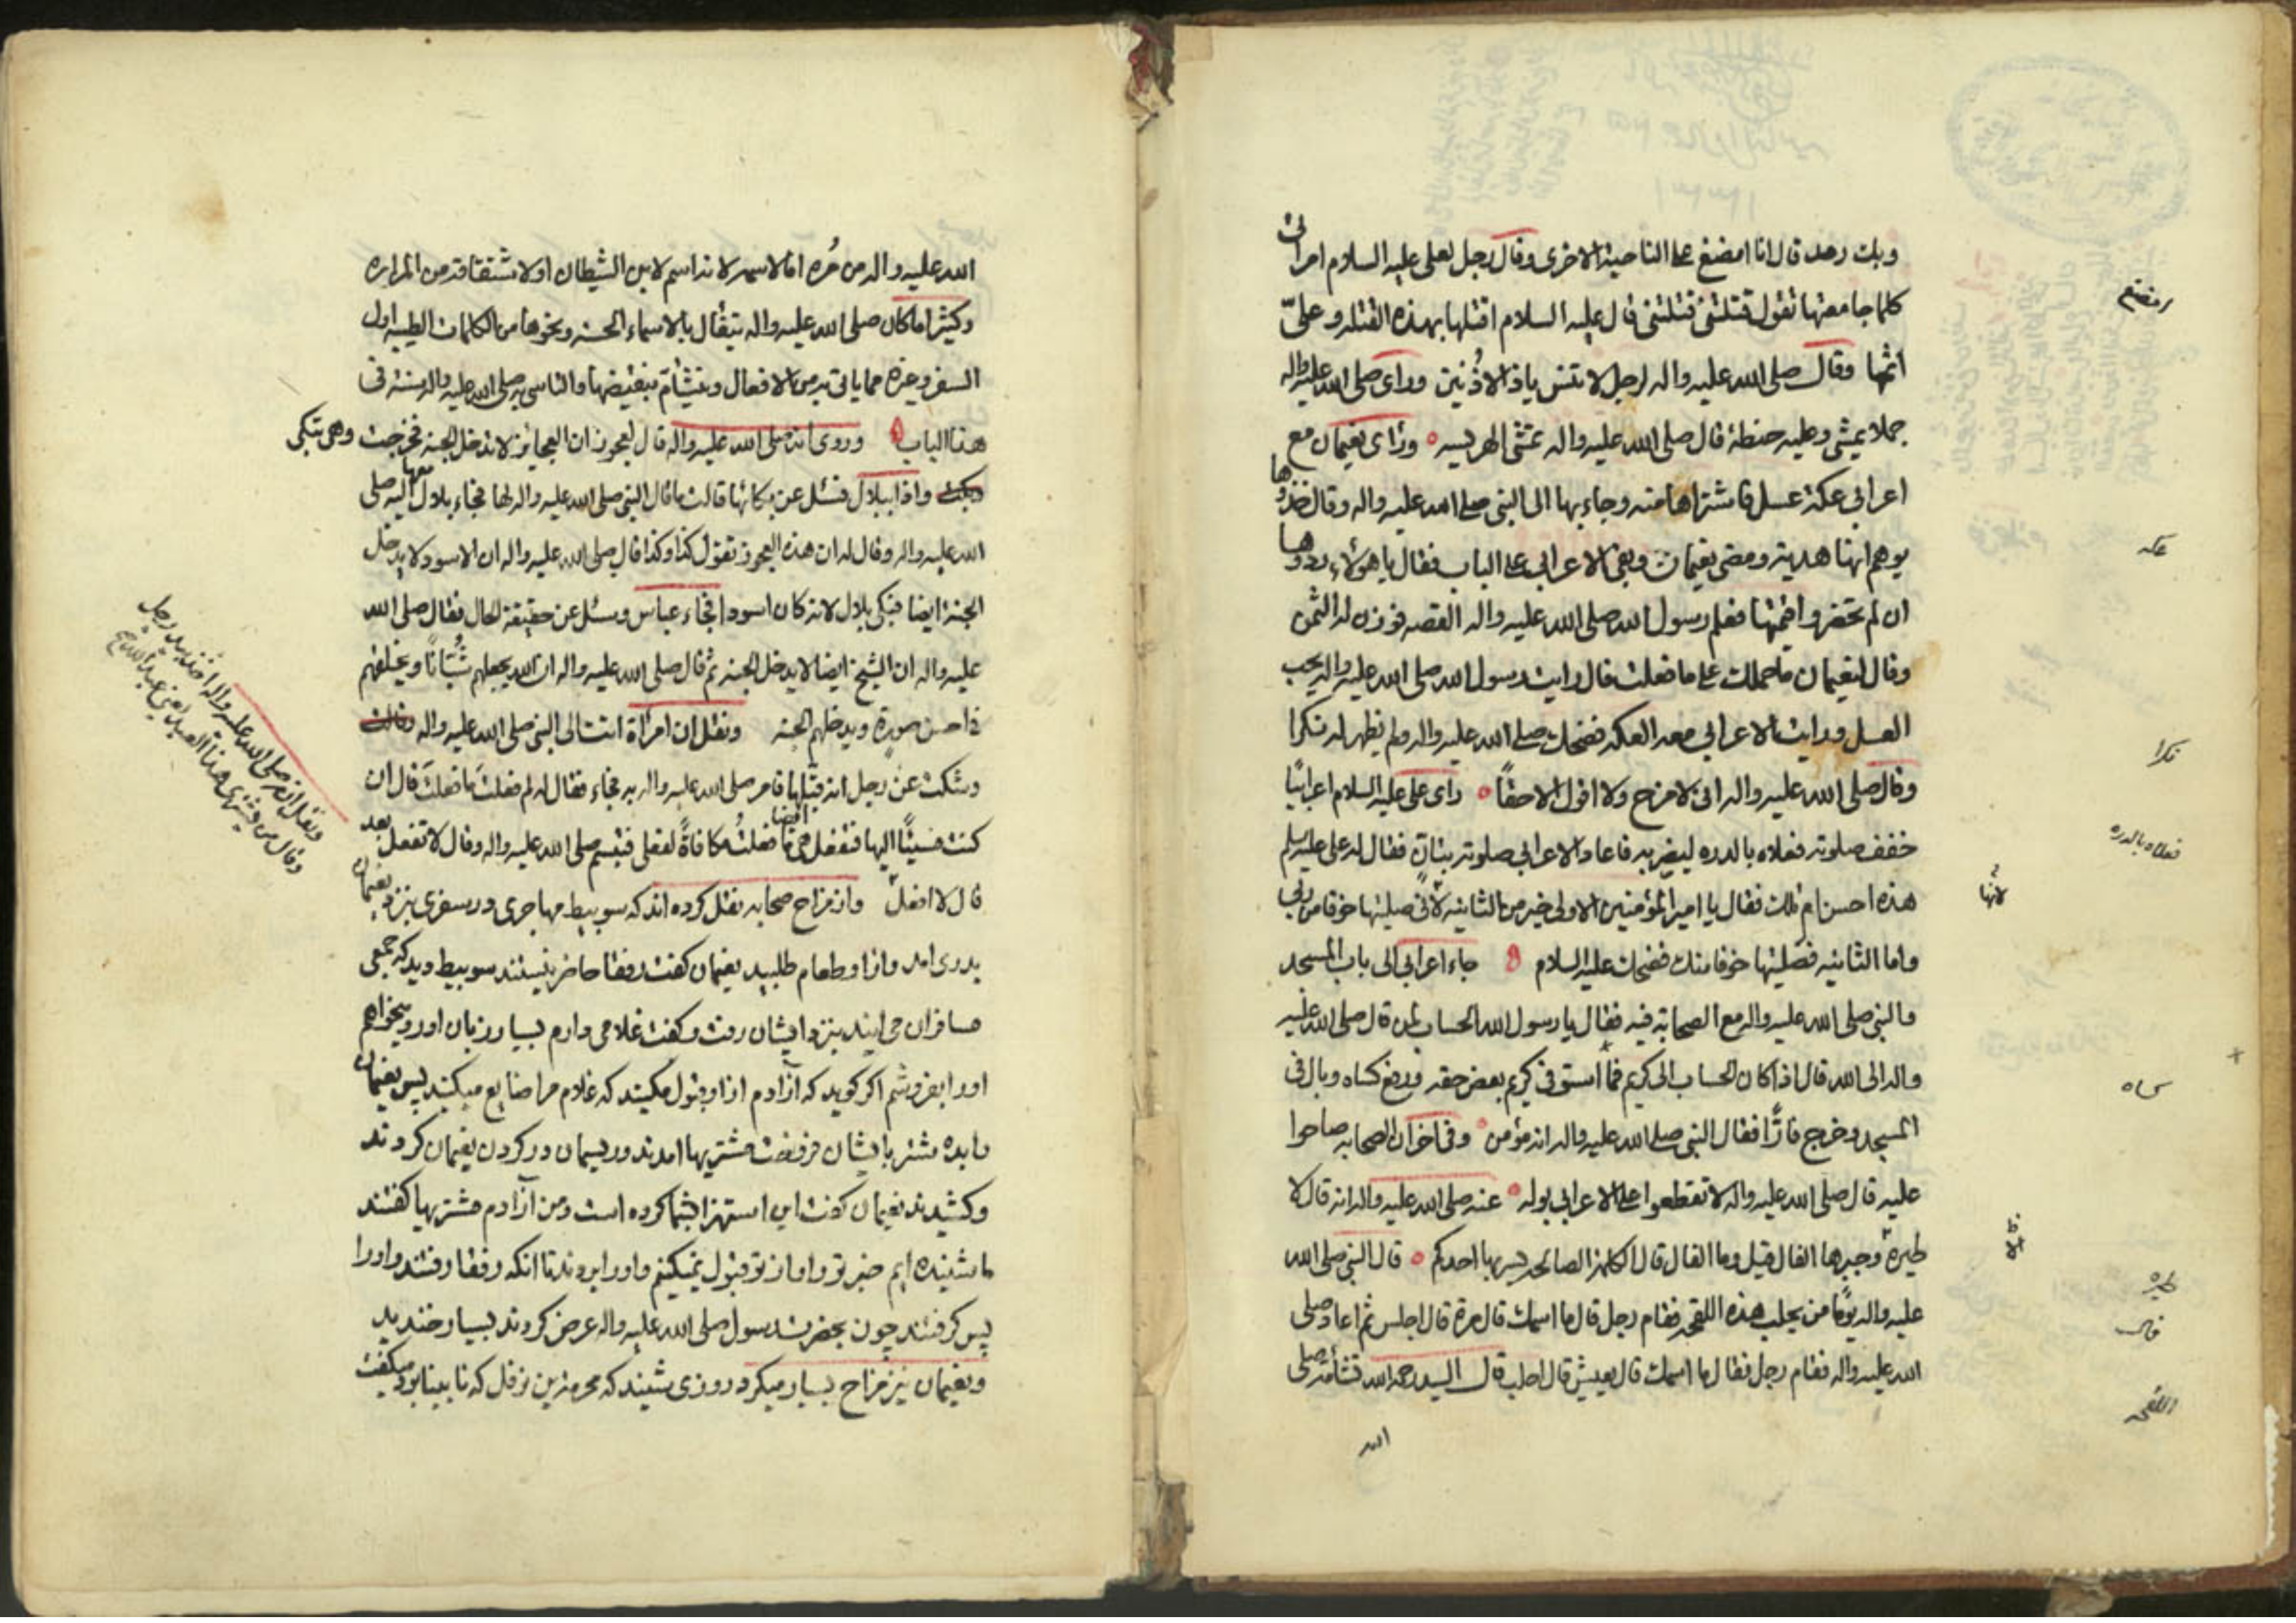 وبك رمد قال انا امضغ على الناحية الاخرى وقال رجل لعلى عليه السلام امراتى
كلما جامعتها تقول قتلتنى قتلتنى قال عليه السلام اقتلها بهذه القتله وعلىّ
اثمها وقال صلى الله عليه واله لرجل لا تنس ياذا الاذُنين وراى صلى الله عليه واله
جملا يمشى وعليه حنطة قال صلى الله عليه واله تمشى الهريسه وراى نعيمان مع
اعرابى عكة عسل فاشتراها منه وجاء بها الى النبى صلى الله عليه واله وقال خذوها
يوهم انها هدية ومضى نعيمان وبقى الاعرابى على الباب فقال يا هولاء ردوها
ان لم تحضروا ثمنها فعلم رسول الله صلى الله عليه واله القصه فوزن له الثمن
وقال لنعيمان ما حملك على ما فعلت قال رايت رسول الله صلى الله عليه واله يحب
العسل ورايت الاعرابى معه العكه فضحك صلى الله عليه واله ولم يظهر له نكرا
وقال صلى الله عليه واله انى لامزح ولا اقول الا حقاً راى على عليه السلام اعرابيًا
خفف صلوته فعلاه بالدره ليضربه فاعاد الاعرابى صلوته بتانٍ فقال له على عليه سلم
هذه احسن ام تلك فقال يا امير المؤمنين الاولى خير من الثانيه لانى صليتها خوفا من ربى
واما الثانيه فصليتها خوفا منك فضحك عليه السلام جاء اعرابى الى باب المسجد
والنبى صلى الله عليه واله مع الصحابة فيه فقال يا رسول الله الحساب لمن قال صلى الله عليه
واله الى الله قال اذا كان الحساب الى كريم فما استوفى كريم بعض حقه فرفع كساه وبال فى
المسجد وخرج فارًّا فقال النبى صلى الله عليه واله انه مؤمن وفى اخر ان الصحابه صاحوا
عليه قال صلى الله عليه واله لا تقطعوا على الاعرابى بوله عنه صلى الله عليه واله انه قال لا
طيرة وخيرها الفال قيل وما الفال قال الكلمة الصالحه يسر بها احدكم قال النبى صلى الله
عليه واله يومًا من يحلب هذه اللقحه فقام رجل قال ما اسمك قال مرة قال اجلس ثم اعاد صلى
الله عليه واله فقام رجل فقال ما اسمك قال يعيش قال احلب قال السيد رحمه الله تشأمه صلى
الله
عكه
نكرا
فعلاه بالدره
لانها
كساه
طيره
فال
اللقحه
الله عليه واله من مُره اما لاسمه لانه اسم لابن الشيطان او لاشتقاقه من المراره
وكثيرا ما كان صلى الله عليه واله يتفأل بالاسماء الحسنه ونحوها من الكلمات الطيبه اول
السفر وغيره مما ياتى به من الافعال ويتشأم بنقيضها والتاسى به صلى الله عليه واله سنة فى
هذا الباب وروى انه صلى الله عليه واله قال لعجوز ان العجائز لا تدخل الجنه فخرجت وهى تبكى
واذا ببلال فسئل عن بكائها قالت ما قال النبى صلى الله عليه واله لها فجاء بلال معها اليه صلى
الله عليه واله وقال له ان هذه العجوز تقول كذا وكذا قال صلى الله عليه واله ان الاسود لا يدخل
الجنة ايضا فبكى بلال لانه كان اسود افجاء عباس وسئل عن حقيقة الحال فقال صلى الله
عليه واله ان الشيخ ايضا لا يدخل الجنه ثم قال صلى الله عليه واله ان الله يجعلهم شُبّانًا ويخلقهم
فى احسن صورة ويدخلهم الجنه ونقل ان امرأة اتت الى النبى صلى الله عليه واله
وشكت عن رجل انه قبّلها فامر صلى الله عليه واله به فجاء فقال له لم فعلت ما فعلت قال ان
كنت مسيئًا اليها فتفعل هى ايضا ما فعلتُ مكافاةً لفعلى فتبسم صلى الله عليه واله وقال لا تفعل بعد
قال لا افعل واز مزاح صحابه نقل كرده اند كه سويبط مهاجرى در سفرى بنزد نعيمان
بدرى امد واز او طعام طلبيد نعيمان كفت رفقا حاضر نيستند سويبط ديد كه جمعى
مسافران مى ايند بنزد ايشان رفت وكفت غلامى دارم بسيار زبان اور وميخواهم
اورا بفروشم اكر كويد كه آزادم از او قبول مكنيد كه غلام مرا ضايع ميكنيد پس نعيمان
را بده شتر بايشان فروخت مشتريها امدند وريسمان در كردن نعيمان كردند
وكشيدند نعيمان كفت اين استهزا بشما كرده است ومن آزادم مشتريها كفتند
ما شنيده ايم خبر تو را واز تو قبول نميكنيم واورا بردند تا انكه رفقا رفتند واورا
پس كرفتند چون بحضرت رسول صلى الله عليه واله عرض كردند بسيار خنديد
ونعيمان نيز مزاح بسيار ميكرد روزى شنيد كه مخرمة بن نوفل كه نابينا بود ميكفت
ونقل انه صلى الله عليه واله اخذ بيد رجل
وقال من يشترى هذا العبد يعنى عبد الله